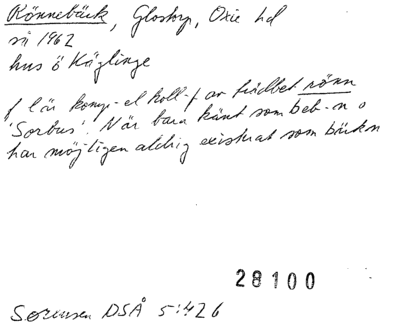 Rönnebäck, Glostorp, Oxie hd
sii 1962
hus ö Käglinge
f l är komp-el koll-f av trädbet rönn
'Sorbus'. När bara känt som beb-n o
har möjligen aldrig existerat som bäckn
28100
Sørensen DSÅ 5:426